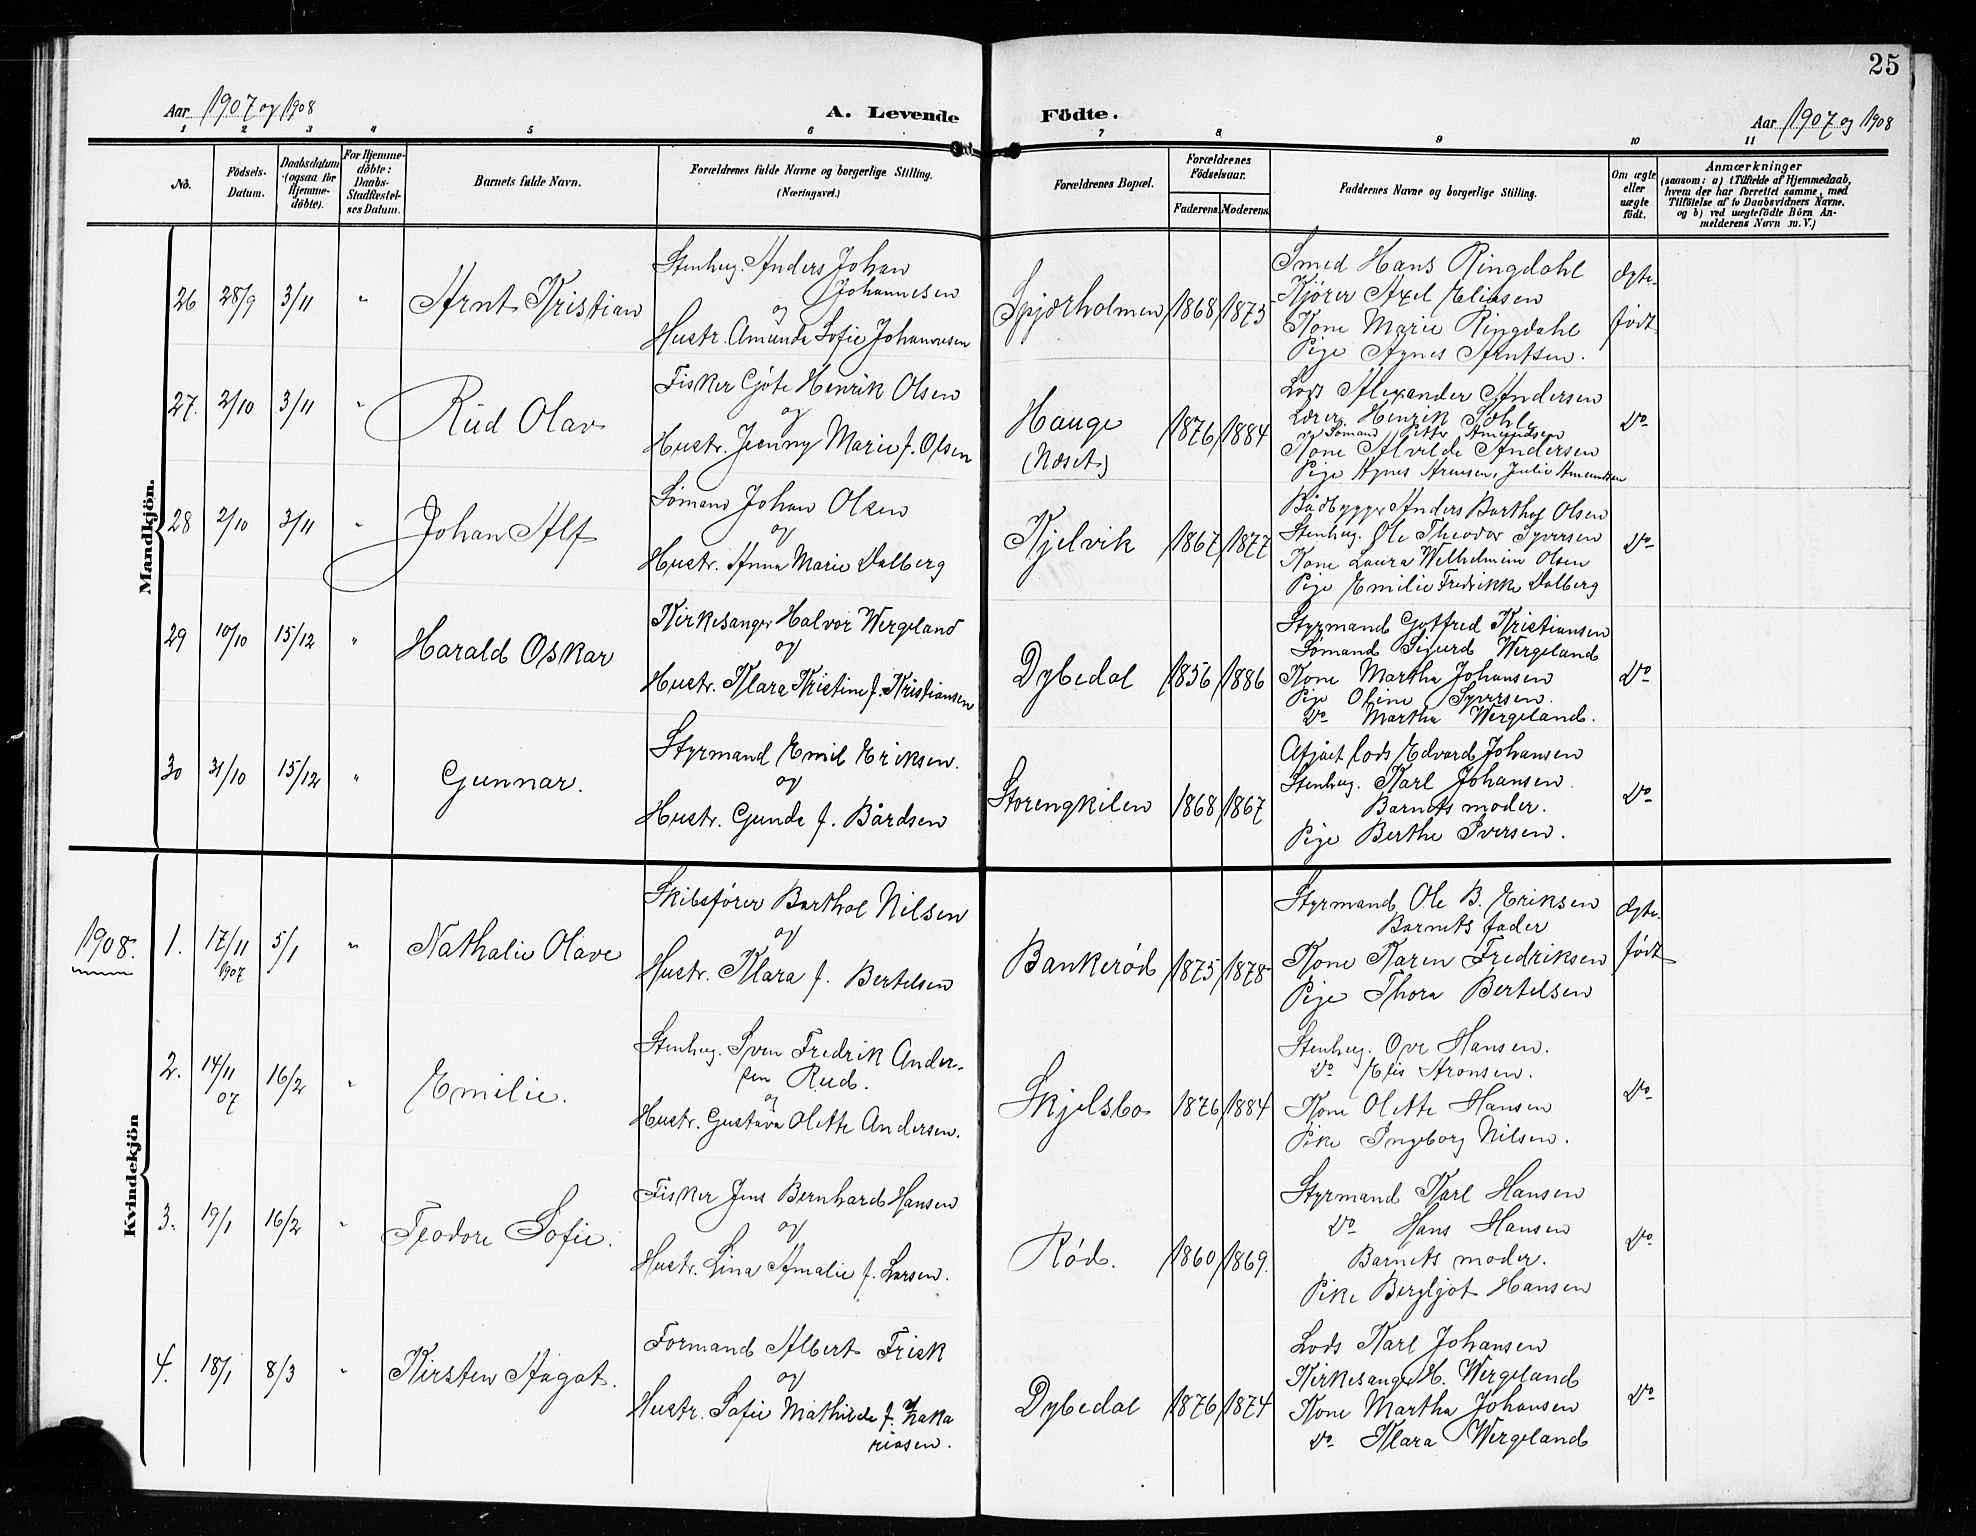 25
Aar 1907 og 1908
A. Levende Födte.
Aar 1907 og 1908
1 2 3 4 5 6 7 8 9 10 11
No.
Födsels-Datum.
Daabsdatum (ogsaa for Hjemme-döbte).
For Hjemme-döbte: Daabs-Stadfæstel-ses Datum.
Barnets fulde Navn.
Forældrenes fulde Navne og borgerlige Stilling.
(Næringsvei.)
Forældrenes Bopæl.
Forældrenes Födselsaar.
Faderens. Moderens.
Faddernes Navne og borgerlige Stilling.
Om ægte eller uægte födt.
Anmærkninger
(saasom: a) i Tilfælde af Hjemmedaab,
hvem der har forrettet samme, med
Tilföielse af to Daabsvidners Navne.
og b) ved uægtefödte Börn An-
melderens Navn m. V.)
Mandkjön.
26 28/9 3/11 " Arnt Kristian
Stenhug. Anders Johan
Johannesen
og
Hustr. Amunda Sofie Johannesen
Spjærholmen 1868 1875
Smed Hans Ringdahl
Kjører Axel Eliasen
Kone Marie Ringdahl
Pige Agnes Arntsen.
Ægte-
født
27. 2/10 3/11 " Rud Olav
Fisker Gjøte Henrik Olsen
og
Hustr. Jenny Marie f. Olsen
Hauge
(Næset)
1876 1884
Lods Alexander Andersen
Lærer Henrik Sæhle
Sømand Petter Amundsen
Kone Alvilde Andersen
Pige Agnes Arnesen, Julie Amundsen
Do
28 2/10 3/11 " Johan Alf
Sømand Johan Olsen
og
Hustr. Anna Marie Dalberg
Kjelvik 1867 1877
Bådbygger Anders Barthol Olsen
Stenhug. Ole Theodor Syversen
Kone Laura Wilhelmine Olsen
Pige Emilie Fredrikke Dalberg
Do
29 10/10 15/12 " Harald Oskar
Kirkesanger Halvor Wergeland
og
Hustr. Klara Kristine f. Kristiansen
Dybedal 1856 1886
Styrmand Gotfred Kristiansen
Sømand Sigurd Wergeland
Kone Martha Johansen
Pige Oline Syversen.
Do Martha Wergeland.
Do
30 31/10 15/12 " Gunnar.
Styrmand Emil Eriksen.
og
Hustr. Gunda f. Bårdsen
Storengkilen 1868 1867
Afgået Lods Edvard Johansen
Stenhug. Karl Johansen.
Barnets moder.
Pige Berthe Iversen.
Do
Kvindekjön
1908.
1. 17/11 1907 5/1 " Nathalie Olave
Skibsfører Barthol Nilsen
og
Hustr. Klara f. Bertelsen
Bankerød 1875 1878
Styrmand Ole B. Eriksen
Barnets fader
Kone Karen Fredriksen
Pige Thora Bertelsen
Ægte-
født
2. 14/11 07 16/2 " Emilie.
Stenhug. Sven Fredrik Ander-
sen Rud.
og
Hustr. Gustava Olette Andersen.
Skjelsbo 1876 1884
Stenhug. Ove Hansen.
Do Elis Aronsen.
Kone Olette Hansen
Pike Ingeborg Nilsen.
Do
3. 19/1 16/2 " Teodore Sofie.
Fisker Jens Bernhard Hansen
og
Hustr. Lina Amalie f. Larsen.
Rød. 1860 1869.
Styrmand Karl Hansen
Do Hans Hansen
Barnets moder.
Pike Bergljot Hansen
Do
4. 18/1 8/3 " Kirsten Aagot.
Formand Albert Frisk
og
Hustr. Sofie Mathilde f. Zaka
riasen.
Dybedal 1876 1874
Lods Karl Johansen
Kirkesanger H. Wergeland
Kone Martha Johansen
Do Klara Wergeland
Do